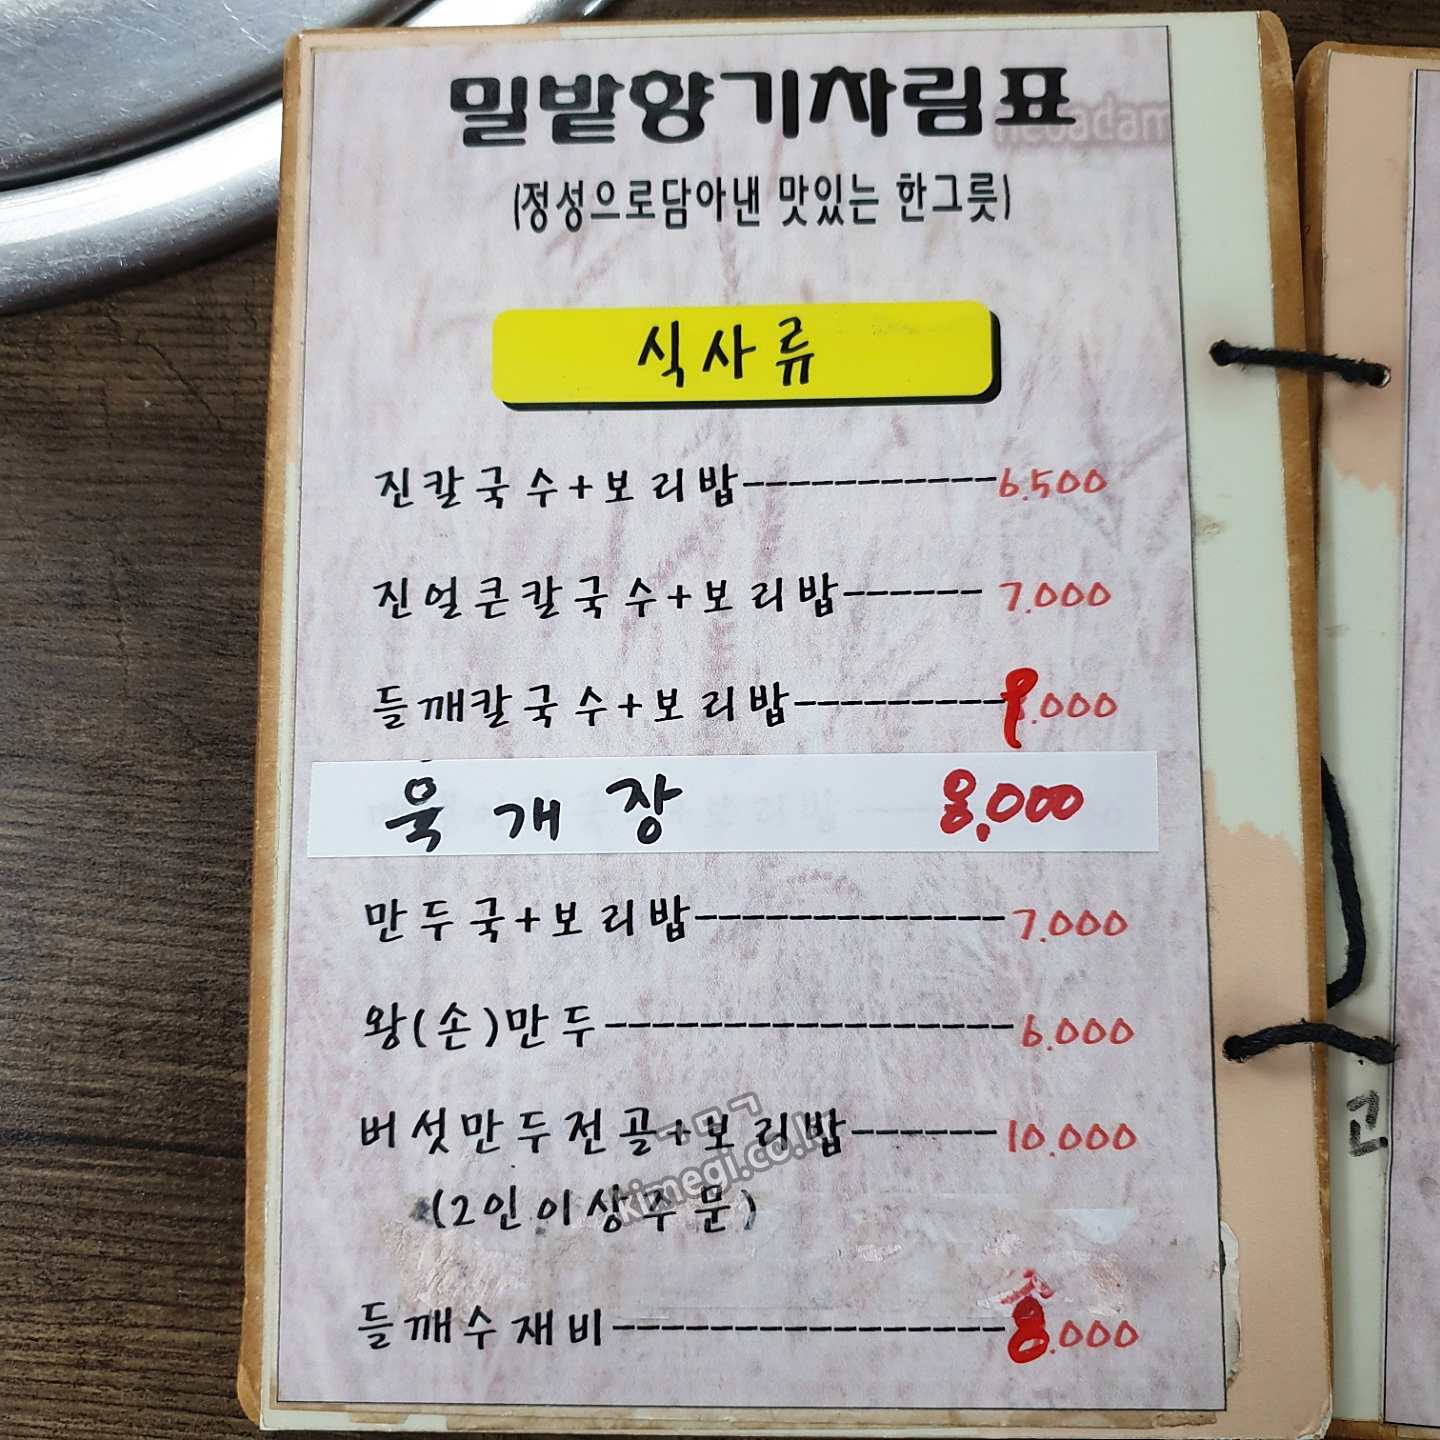 밀밭향기차림표
(정성으로담아낸 맛있는 한그릇)
식사류
진칼국수+보리밥-----------6.500
진얼큰칼국수+보리밥------ 7.000
들깨칼국수+보리밥---------9.000
육개장 8,000
만두국+보리밥-------------7.000
왕(손)만두------------------6.000
버섯만두전골+보리밥------10.000
(2인이상주문)
들깨수재비-----------------8.000
ㄱㅁㄱ
kimegi.co.kr
고